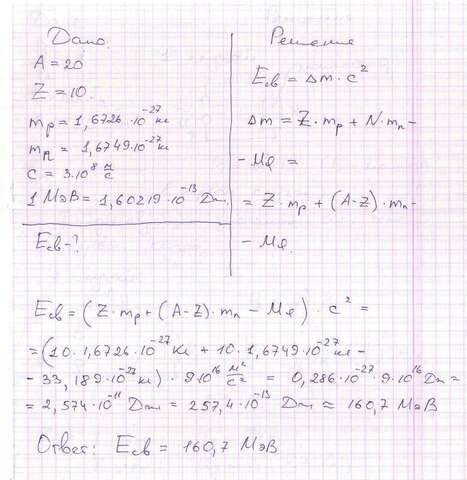 Дано:
A = 20
Z = 10.
mp = 1,6726 · 10⁻²⁷ кг
mn = 1,6749 · 10⁻²⁷ кг
c = 3 · 10⁸ м/с
1 МэВ = 1,60219 · 10⁻¹³ Дж
Eсв - ?
Решение
Eсв = Δm · c²
Δm = Z · mp + N · mn -
- Mя =
= Z · mp + (A-Z) · mn -
- Mя.
Eсв = (Z · mp + (A-Z) · mn - Mя) · c² =
= (10 · 1,6726 · 10⁻²⁷ кг + 10 · 1,6749 · 10⁻²⁷ кг -
- 33,189 · 10⁻²⁷ кг) · 9·10¹⁶ м²/с² = 0,286 · 10⁻²⁷ · 9 · 10¹⁶ Дж =
= 2,574 · 10⁻¹¹ Дж = 257,4 · 10⁻¹³ Дж ≈ 160,7 МэВ
Ответ: Eсв = 160,7 МэВ